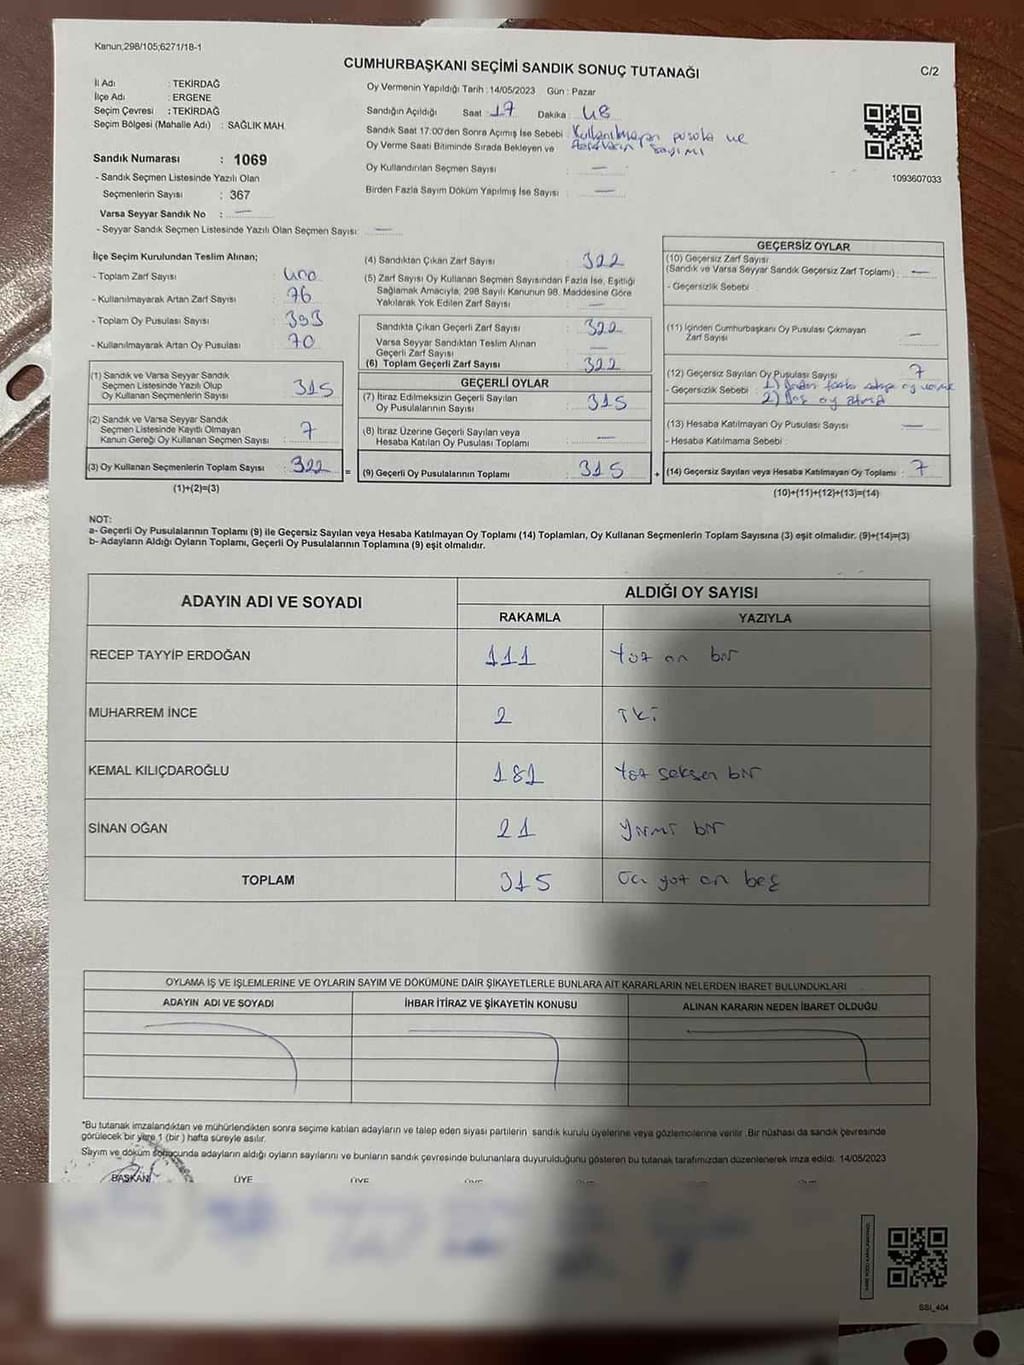 Kanun;298/105;6271/18-1
CUMHURBAŞKANI SEÇİMİ SANDIK SONUÇ TUTANAĞI
C/2
İl Adı : TEKİRDAĞ
İlçe Adı : ERGENE
Seçim Çevresi : TEKİRDAĞ
Seçim Bölgesi (Mahalle Adı) : SAĞLIK MAH.
Sandık Numarası : 1069
- Sandık Seçmen Listesinde Yazılı Olan
Seçmenlerin Sayısı : 367
Varsa Seyyar Sandık No : —
- Seyyar Sandık Seçmen Listesinde Yazılı Olan Seçmen Sayısı: —
Oy Vermenin Yapıldığı Tarih : 14/05/2023 Gün : Pazar
Sandığın Açıldığı Saat : 17 Dakika : 48
Sandık Saat 17:00'den Sonra Açımış İse Sebebi : Kullanılmayan pusula ve
Oy Verme Saati Bitiminde Sırada Bekleyen ve sayımı
Oy Kullandırılan Seçmen Sayısı : —
Birden Fazla Sayım Döküm Yapılmış İse Sayısı : —
1093607033
İlçe Seçim Kurulundan Teslim Alınan;
- Toplam Zarf Sayısı : 400
- Kullanılmayarak Artan Zarf Sayısı : 76
- Toplam Oy Pusulası Sayısı : 393
- Kullanılmayarak Artan Oy Pusulası : 70
(1) Sandık ve Varsa Seyyar Sandık
Seçmen Listesinde Yazılı Olup
Oy Kullanan Seçmenlerin Sayısı : 315
(2) Sandık ve Varsa Seyyar Sandık
Seçmen Listesinde Kayıtlı Olmayan
Kanun Gereği Oy Kullanan Seçmen Sayısı : 7
(3) Oy Kullanan Seçmenlerin Toplam Sayısı : 322
(1)+(2)=(3)
(4) Sandıktan Çıkan Zarf Sayısı : 322
(5) Zarf Sayısı Oy Kullanan Seçmen Sayısından Fazla İse, Eşitliği
Sağlamak Amacıyla, 298 Sayılı Kanunun 98. Maddesine Göre
Yakılarak Yok Edilen Zarf Sayısı : —
Sandıkta Çıkan Geçerli Zarf Sayısı : 322
Varsa Seyyar Sandıktan Teslim Alınan
Geçerli Zarf Sayısı : —
(6) Toplam Geçerli Zarf Sayısı : 322
GEÇERLİ OYLAR
(7) İtiraz Edilmeksizin Geçerli Sayılan
Oy Pusulalarının Sayısı : 315
(8) İtiraz Üzerine Geçerli Sayılan veya
Hesaba Katılan Oy Pusulası Toplamı : —
= (9) Geçerli Oy Pusulalarının Toplamı : 315
GEÇERSİZ OYLAR
(10) Geçersiz Zarf Sayısı
(Sandık ve Varsa Seyyar Sandık Geçersiz Zarf Toplamı) : —
- Geçersizlik Sebebi :
(11) İçinden Cumhurbaşkanı Oy Pusulası Çıkmayan
Zarf Sayısı : —
(12) Geçersiz Sayılan Oy Pusulası Sayısı : 7
- Geçersizlik Sebebi : 1) Birden fazla
2) Boş oy atma
(13) Hesaba Katılmayan Oy Pusulası Sayısı : —
- Hesaba Katılmama Sebebi :
+ (14) Geçersiz Sayılan veya Hesaba Katılmayan Oy Toplamı : 7
(10)+(11)+(12)+(13)=(14)
NOT:
a- Geçerli Oy Pusulalarının Toplamı (9) ile Geçersiz Sayılan veya Hesaba Katılmayan Oy Toplamı (14) Toplamları, Oy Kullanan Seçmenlerin Toplam Sayısına (3) eşit olmalıdır. (9)+(14)=(3)
b- Adayların Aldığı Oyların Toplamı, Geçerli Oy Pusulalarının Toplamına (9) eşit olmalıdır.
ADAYIN ADI VE SOYADI
ALDIĞI OY SAYISI
RAKAMLA YAZIYLA
RECEP TAYYİP ERDOĞAN 111 Yüz on bir
MUHARREM İNCE 2 İki
KEMAL KILIÇDAROĞLU 181 Yüz seksen bir
SİNAN OĞAN 21 Yirmi bir
TOPLAM 315 Üç yüz on beş
OYLAMA İŞ VE İŞLEMLERİNE VE OYLARIN SAYIM VE DÖKÜMÜNE DAİR ŞİKAYETLERLE BUNLARA AİT KARARLARIN NELERDEN İBARET BULUNDUKLARI
ADAYIN ADI VE SOYADI İHBAR İTİRAZ VE ŞİKAYETİN KONUSU ALINAN KARARIN NEDEN İBARET OLDUĞU
*Bu tutanak imzalandıktan ve mühürlendikten sonra seçime katılan adayların ve talep eden siyasi partilerin sandık kurulu üyelerine veya gözlemcilerine verilir. Bir nüshası da sandık çevresinde
görülecek bir yere 1 (bir) hafta süreyle asılır.
Sayım ve döküm sonucunda adayların aldığı oyların sayılarını ve bunların sandık çevresinde bulunanlara duyurulduğunu gösteren bu tutanak tarafımızdan düzenlenerek imza edildi. 14/05/2023
BAŞKAN ÜYE ÜYE ÜYE ÜYE ÜYE ÜYE
SSI_404